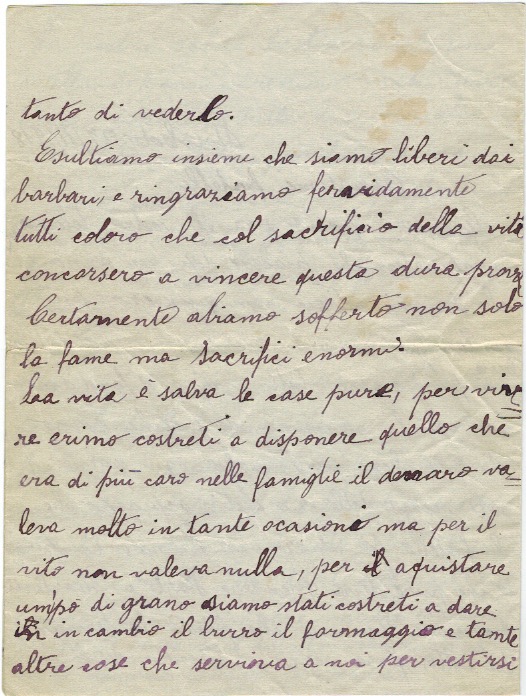 tanto di vederlo.
Esultiamo insieme che siamo liberi dai
barbari, e ringraziamo feravidamente
tutti coloro che col sacrificio della vita
concorsero a vincere questa dura prova
Certamente abiamo sofferto non solo
la fame ma sacrifici enormi.
La vita è salva le case pure, per vive=
re erimo costreti a disponere quello che
era di più caro nelle famiglie il denaro va=
leva molto in tante ocasioni ma per il
vito non valeva nulla, per aquistare
umpò di grano siamo stati costreti a dare
in cambio il burro il formaggio e tante
altre cose che serviova a noi per vestirsi